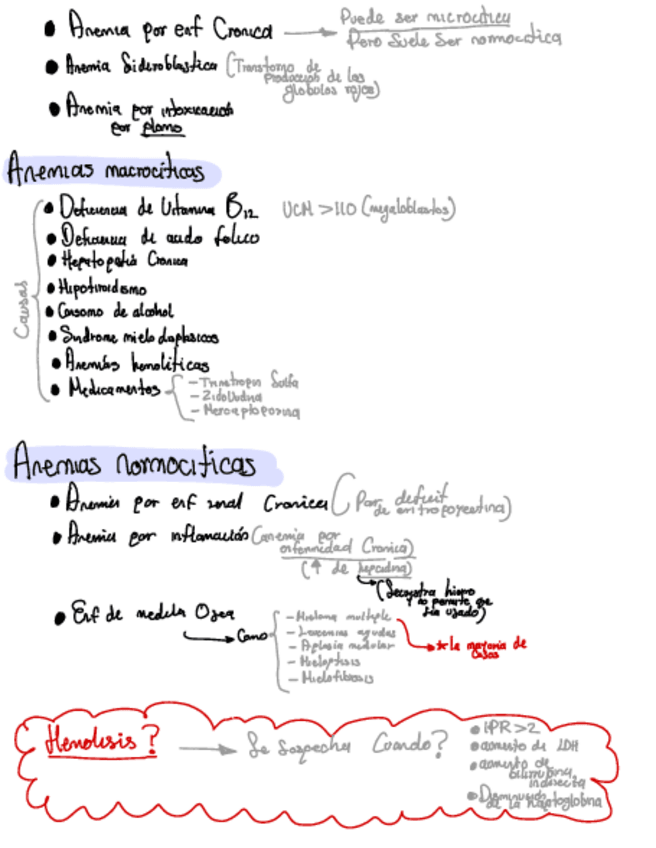 ● Anemia por enf Cronica → Puede ser microcitica
Pero Suele Ser normocitica
● Anemia Sideroblastica (Transtorno de
Produccion de los
globulos rojos)
● Anemia por intoxicación
por plomo
Anemias macrocíticas
Causas
● Deficiencia de Vitamina B12 VCM >110 (megaloblastos)
● Deficiencia de acido folico
● Hepatopatia Cronica
● Hipotiroidismo
● Consumo de alcohol
● Sindrome mielodisplasicos
● Anemias hemoliticas
● Medicamentos
- Trimetropin Sulfa
- Zidovudina
- Mercaptopurina
Anemias normocíticas
● Anemia por enf renal Cronica (Por deficit
de eritropoyetina)
● Anemia por inflamación (anemia por
enfermedad Cronica)
(↑ de hepcidina)
(Secuestra hierro
y no permite que
sea usado)
● Enf de medula Osea
→ Como
- Mieloma multiple
→ * la mayoria de
casos
- Leucemias agudas
- Aplasia medular
- Mieloptisis
- Mielofibrosis
Hemolisis? → Se Sospecha Cuando?
● IPR >2
● aumento de LDH
● aumento de
bilirrubina
indirecta
● Disminucion
de la haptoglobina